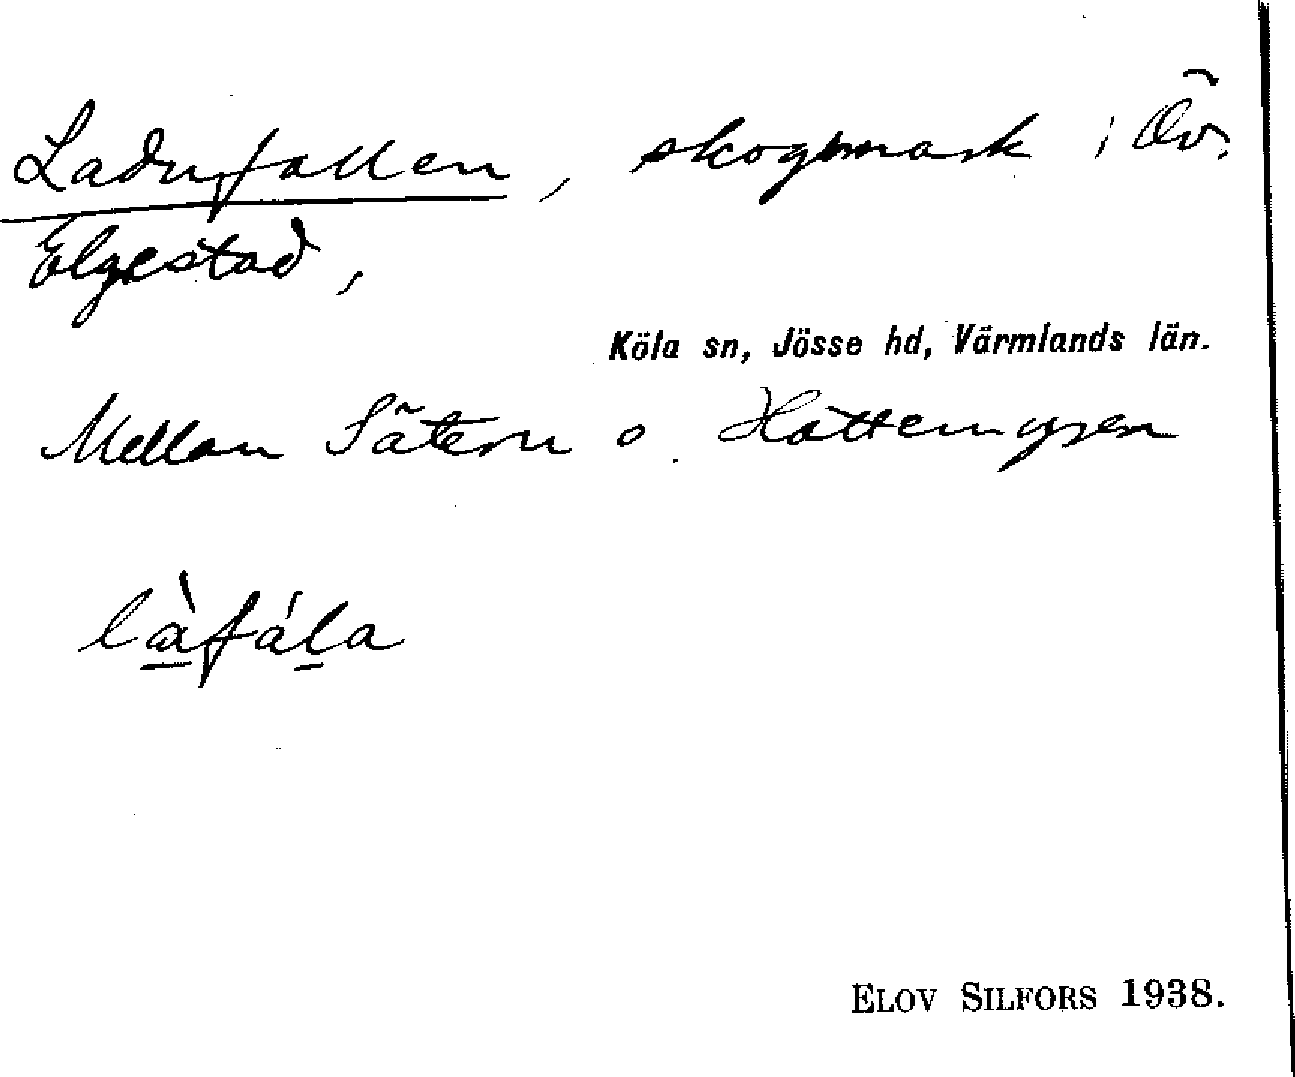 Ladufallen, skogsmark i Öv.
Elgestad,
Köla sn, Jösse hd, Värmlands län.
Mellan Sätern o. Hattemyren
làfála
ELOV SILFORS 1938.